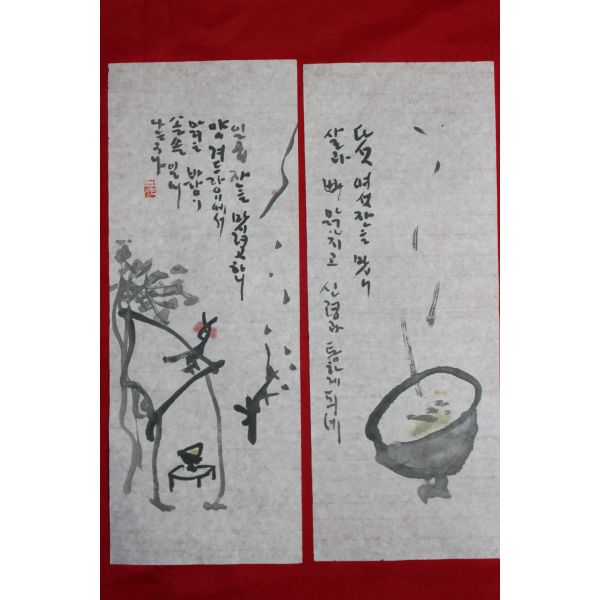 다섯 여섯 잔을 마시니
살과 뼈 맑아지고 신령과 통하게 되네
일곱 잔을 마시려 하니
양 겨드랑이에서
맑은 바람이
솔솔 일어